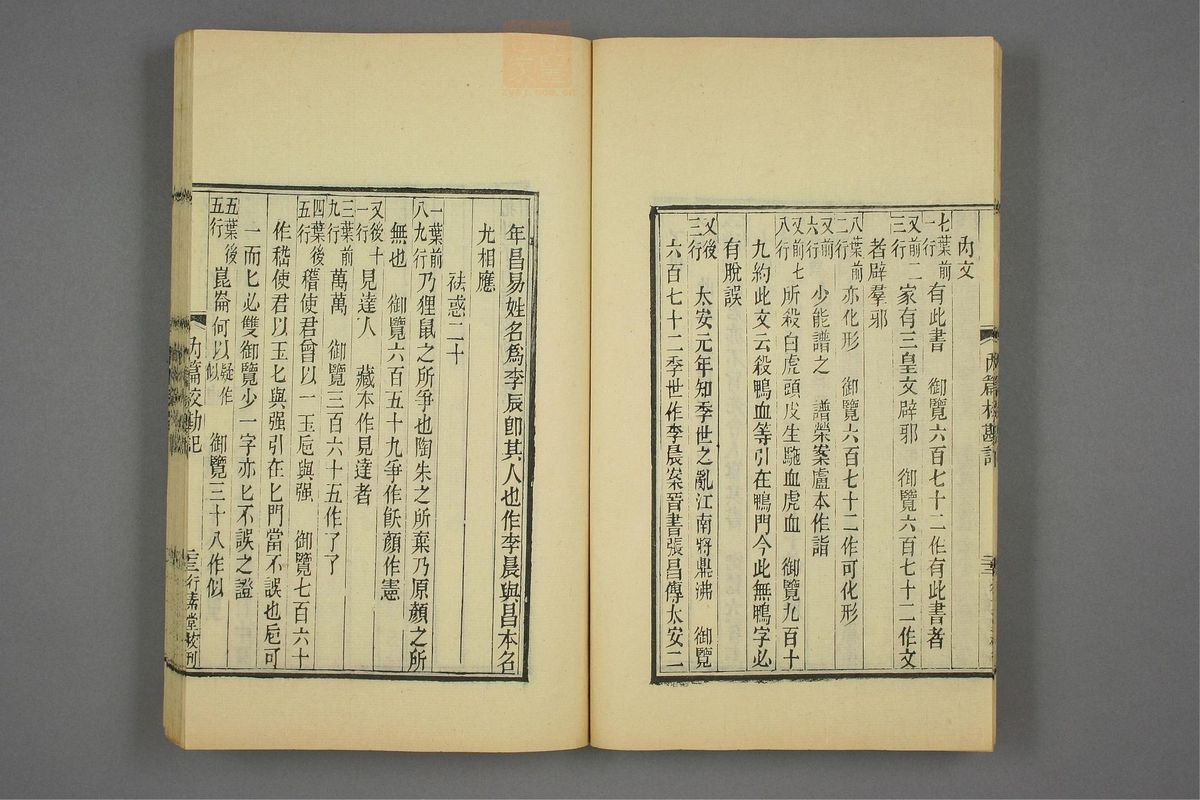 內文
七葉前一行 有此書 御覽六百七十二作有此書者
又前二三行 家有三皇文辟邪 御覽六百七十二作文
者辟羣邪
八葉前二行 亦化形 御覽六百七十二作可化形
又前六行 少能譜之 譜榮案盧本作諧
又前七八行 所殺白虎頭皮生駞血虎血 御覽九百十
九約此文云殺鴨血等引在鴨門今此無鴨字必
有脫誤
又後三行 太安元年知季世之亂江南將鼎沸 御覽
六百七十二季世作李晨案晉書張昌傳太安二
丙篇校勘記
年昌易姓名爲李辰卽其人也作李晨與昌本名
尤相應
祛惑二十
一葉前八九行 乃狸鼠之所爭也陶朱之所棄乃原顏之所
無也 御覽六百五十九爭作飫顏作憲
又後十一行 見達人 藏本作見達者
三葉前九行 萬萬 御覽三百六十五作了了
四葉後五行 稽使君曾以一玉卮與强 御覽七百六十
作嵇使君以玉匕與强引在匕門當不誤也卮可
一而匕必雙御覽少一字亦匕不誤之證
五葉後五行 崑崙何以疑作何似 御覽三十八作似
內篇校勘記
二十三 行素堂校刊